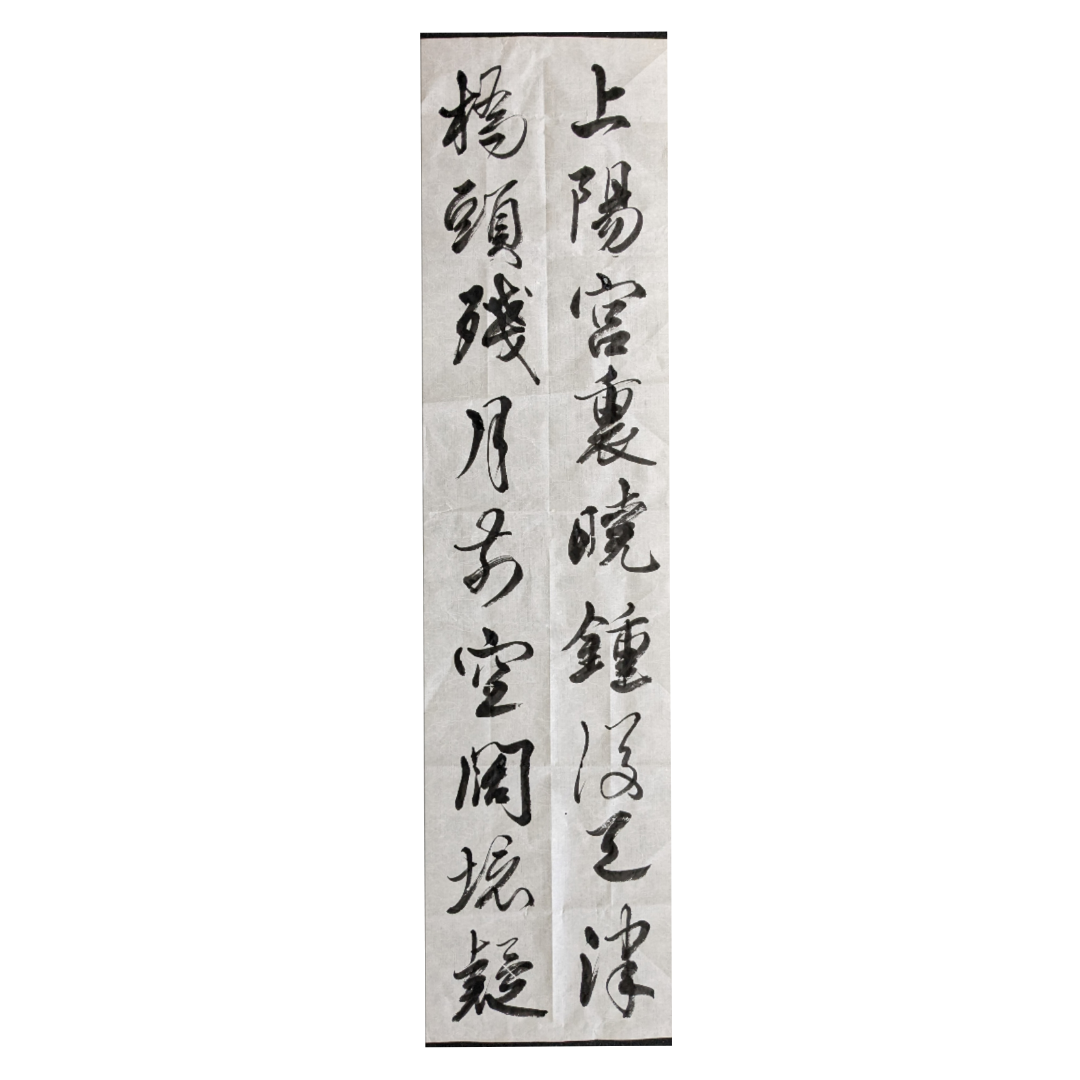 上陽宮裏曉鍾後天津
橋頭殘月前空闊境疑